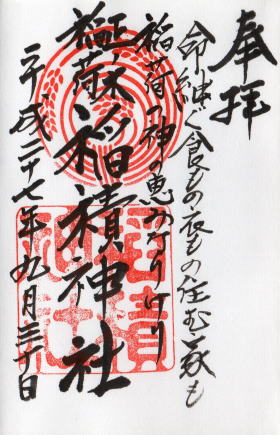 奉拝
命継ぐ食もの衣もの住む家も
稲荷の神の恵みなりけり
正ノ木
稲荷
稲積神社
平成二十七年九月三十日
稲積神社